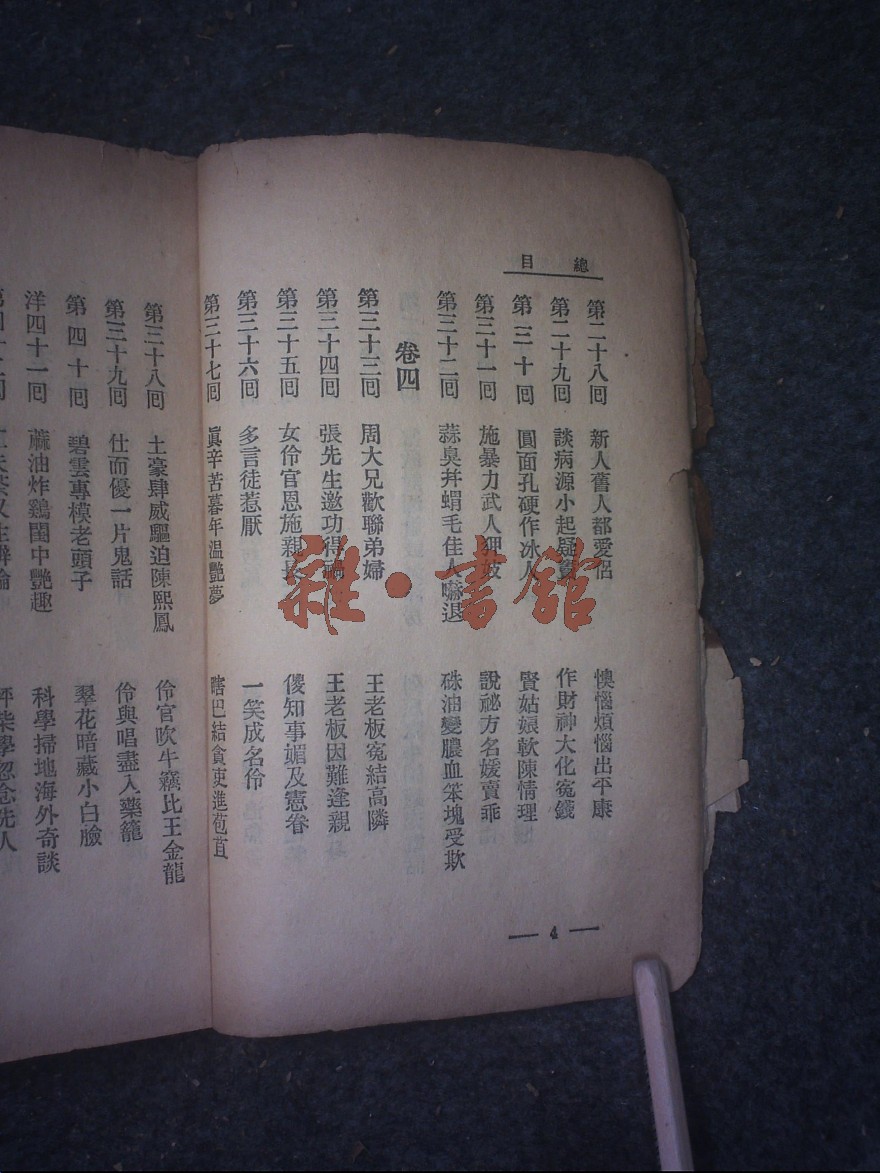 總目
第二十八回 新人舊人都愛侶 懊惱煩惱出平康
第二十九回 談病源小起疑 作財神大化冤錢
第三十回 圓面孔硬作冰人 賢姑娘軟陳情理
第三十一回 施暴力武人狎妓 說祕方名媛賣乖
第三十二回 蒜臭幷蝟毛佳人嚇退 硃油變膿血笨塊受欺
卷四
第三十三回 周大兄歡聯弟婦 王老板寃結高隣
第三十四回 張先生邀功得禍 王老板因難逢親
第三十五回 女伶官恩施親長 傻知事媚及憲眷
第三十六回 多言徒惹厭 一笑成名伶
第三十七回 眞辛苦暮年温艷夢 瞎巴結貪吏進苞苴
— 4 —
第三十八回 土豪肆威驅迫陳熙鳳 伶官吹牛竊比王金龍
第三十九回 仕而優一片鬼話 伶與唱盡入藥籠
第四十回 碧雲專模老頭子 翠花暗藏小白臉
洋四十一回 蔴油炸鷄閨中艷趣 科學掃地海外奇談
雜·書館